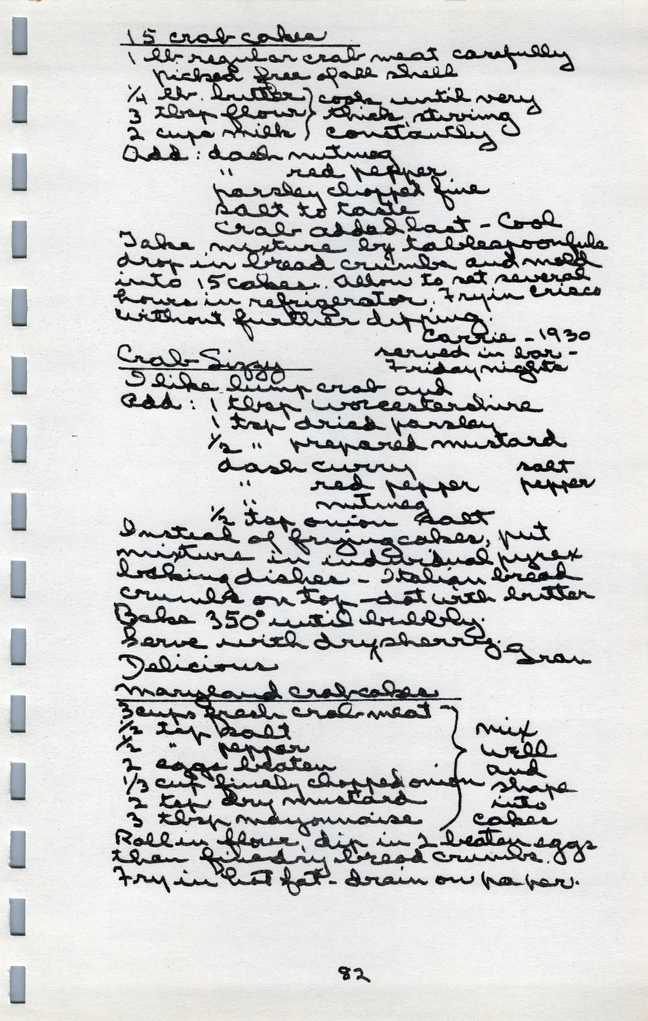 15 crab cakes
1 lb regular crab meat carefully
picked free of all shell
1/4 lb. butter } cook until very
3 tbsp flour } thick, stirring
2 cups milk } constantly
Add: dash nutmeg
" red pepper
parsley chopped fine
salt to taste
Crab added last - Cool
Take mixture by tablespoonfuls
drop in bread crumbs and mold
into 15 cakes. Allow to set several
hours in refrigerator. Fry in Crisco
without further dipping.
Carrie - 1930
served in bar -
Friday nights
Crab Sizzy
I like lump crab and
Add: 1 tbsp Worcestershire
1 tsp dried parsley
1/2 " prepared mustard
dash curry salt
" red pepper pepper
" nutmeg
1/2 tsp onion salt
Instead of frying cakes, put
mixture in individual pyrex
baking dishes - Italian bread
crumbs on top - dot with butter
Bake 350° until bubbly.
Serve with dry sherry.
Delicious
Maryland crabcakes
3 cups fresh crab meat }
1/2 tsp salt } mix
1/2 " pepper } well
2 eggs beaten } and
1/3 cup finely chopped onion } shape
2 tsp dry mustard } into
3 tbsp mayonnaise } cakes
Roll in flour, dip in 2 beaten eggs
then fine dry bread crumbs.
Fry in hot fat - drain on paper.
82